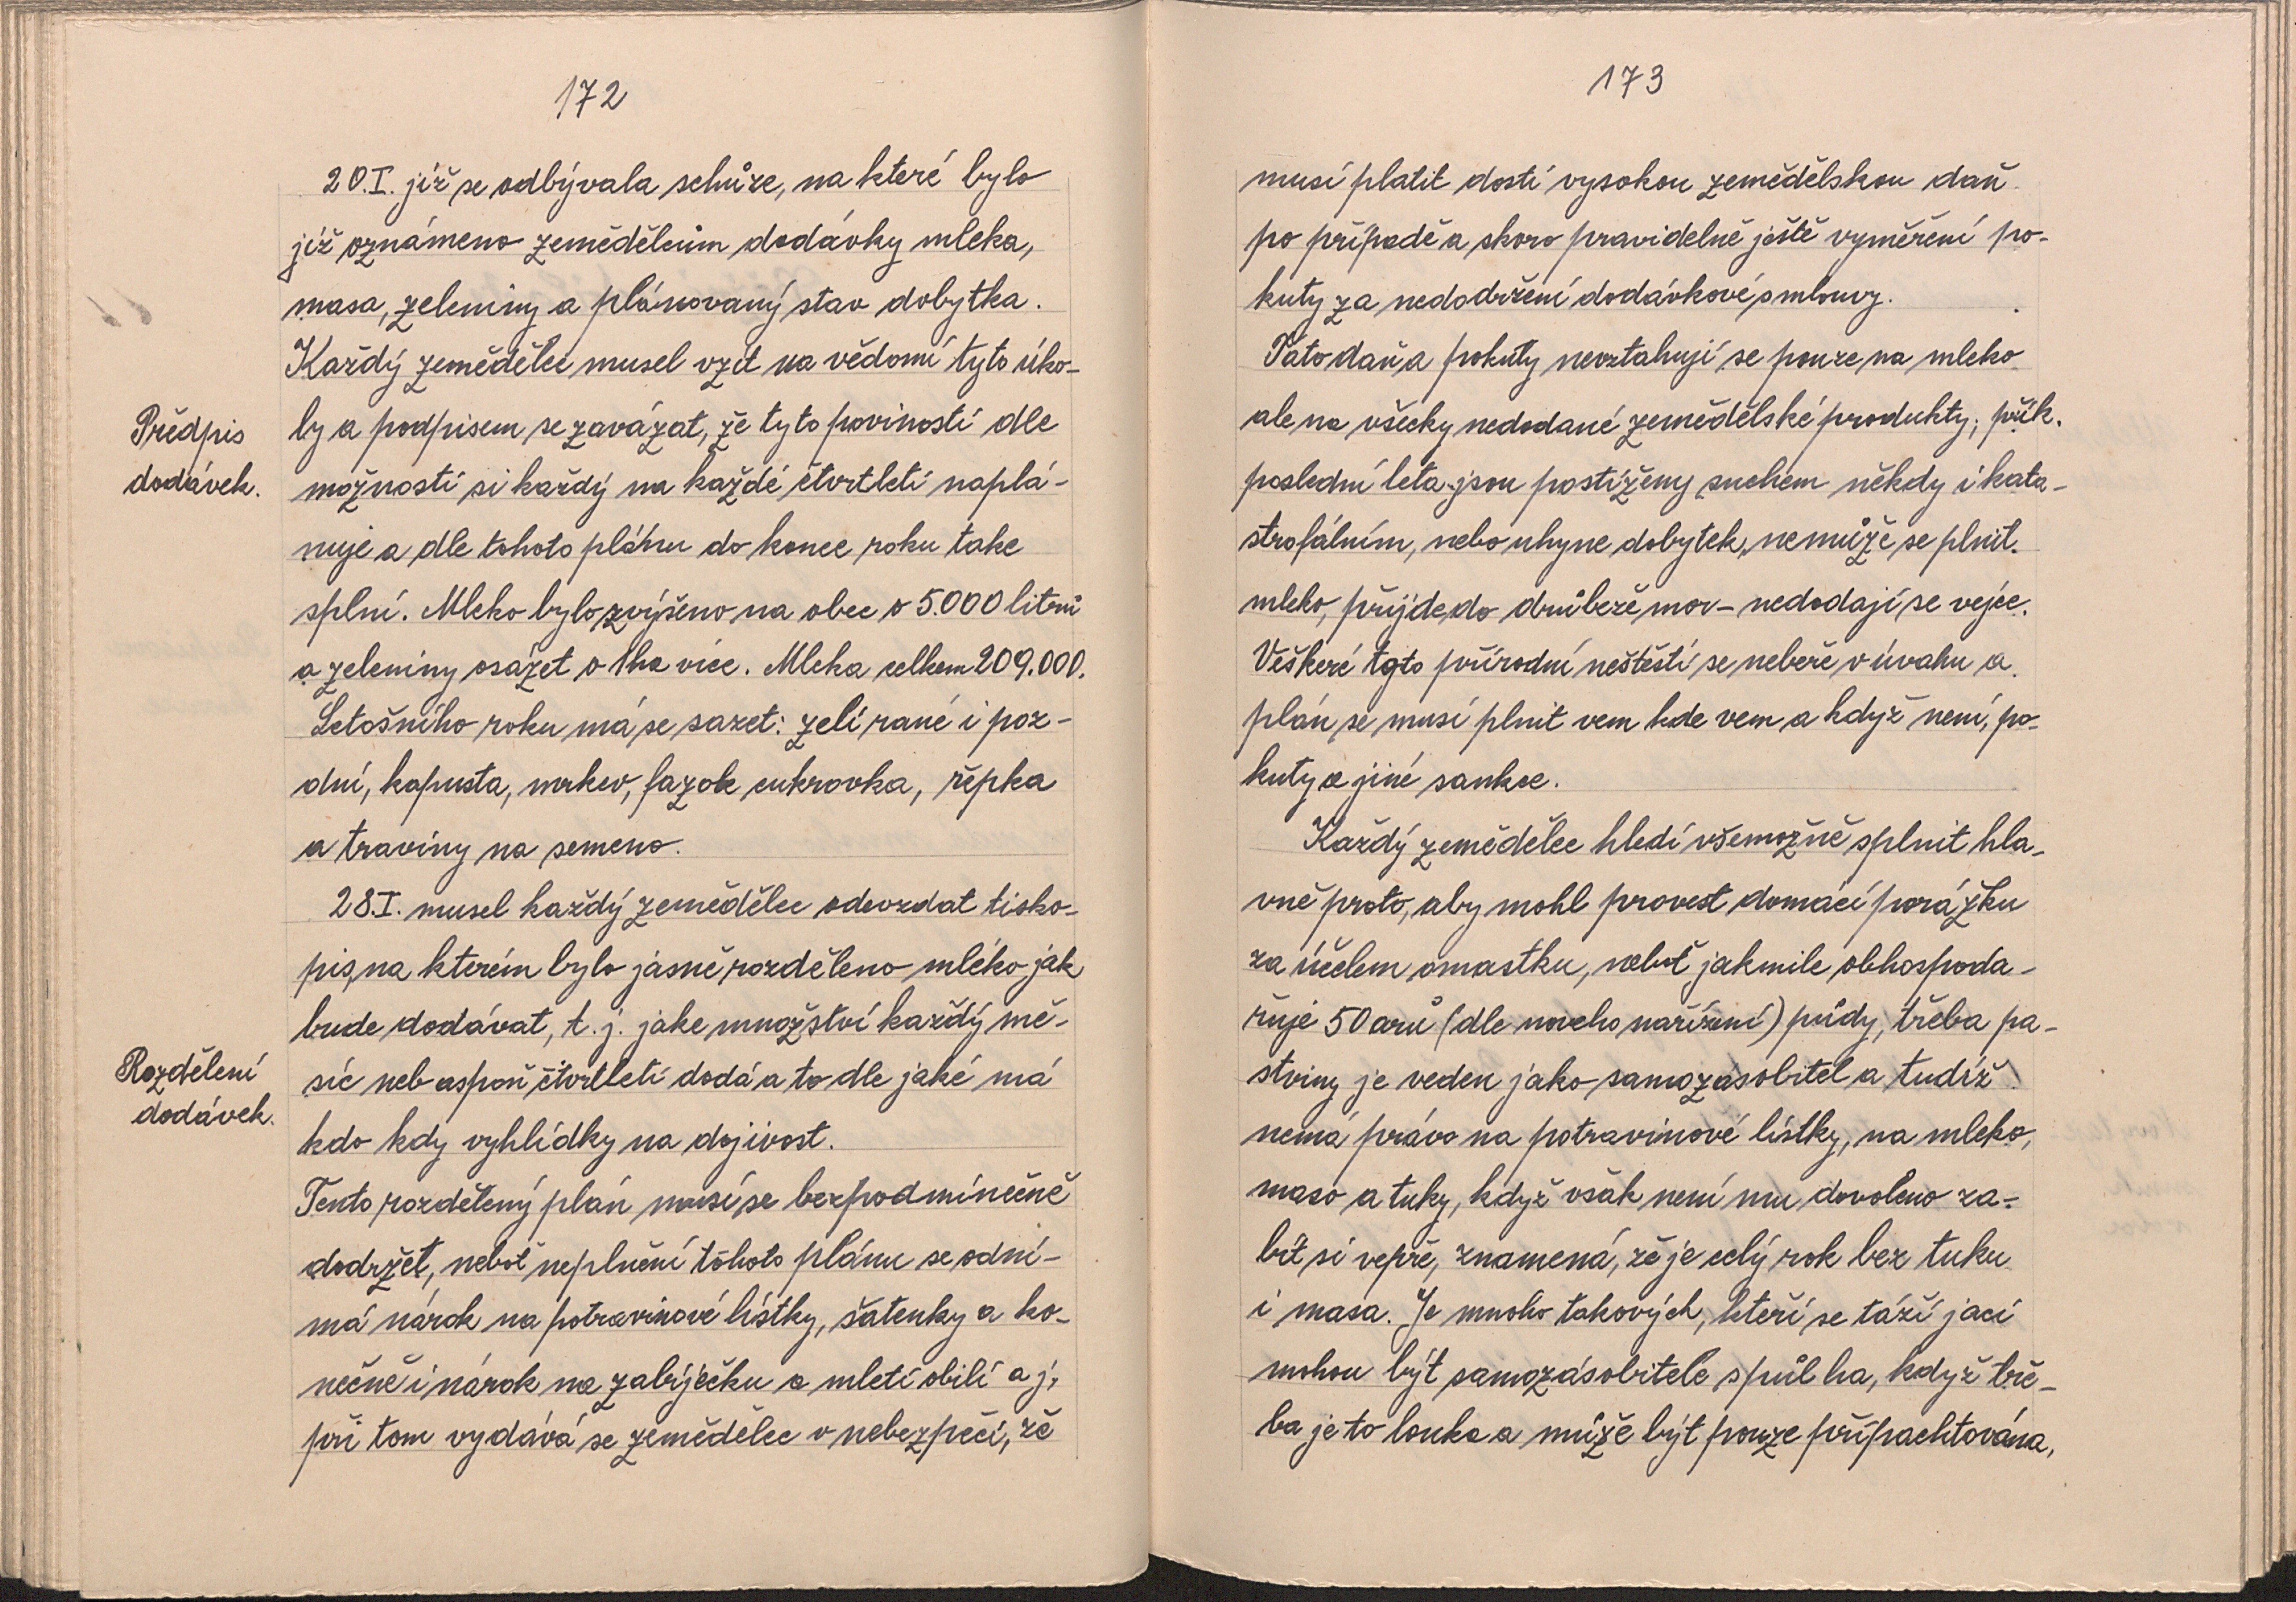 172
20.I. již se odbývala schůze, na které bylo
již oznámeno zemědělcům dodávky mleka,
masa, zeleniny a plánovaný stav dobytka.
Každý zemědělec musel vzít na vědomí tyto úko-
Předpis
dodávek.
ly a podpisem se zavázat, že tyto povinosti dle
možnosti si každý na každé čtvrtletí naplá-
nuje a dle tohoto plánu do konce roku take
splní. Mleko bylo zvýšeno na obec o 5.000 litrů
a zeleniny osázet o 1ha více. Mleka celkem 209.000.
Letošního roku má se sazet: zelí rané i poz-
dní, kapusta, mrkev, fazole cukrovka, řepka
a traviny na semeno.
28.I. musel každý zemědělec odevzdat tisko-
pis, na kterém bylo jasně rozděleno mléko jak
bude dodávat, t. j. jake množství každý mě-
Rozdělení
dodávek.
síc neb aspoň čtvrtletí dodá a to dle jaké má
kdo kdy vyhlídky na dojivost.
Tento rozdělený plán musí se bezpodmínečně
dodržet, neboť neplnění tohoto plánu se odní-
má nárok na potravinové lístky, šatenky a ko-
nečně i nárok na zabíječku a mletí obilí a j.
při tom vydává se zemědělec v nebezpečí, že
173
musí platit dosti vysokou zemědělskou daň
po případě a skoro pravidelně ještě vyměření po-
kuty za nedodržení dodávkové smlouvy.
Tato daň a pokuty nevztahují se pouze na mleko
ale na všecky nedodané zemědělské produkty; přík.
poslední leta jsou postiženy suchem někdy i kata-
strofálním, nebo uhyne dobytek, nemůže se plnit
mleko, přijde do drůbeže mor - nedodají se vejce.
Veškeré tyto přírodní neštěstí se nebeře v úvahu a
plán se musí plnit vem kde vem a když není, po-
kuty a jiné sankce.
Každý zemědělec hledí všemožně splnit hla-
vně proto, aby mohl provest domácí porážku
za účelem omastku, neboť jakmile obhospoda-
řuje 50 arů (dle noveho nařízení) půdy, třeba pa-
stviny je veden jako samozásobitel a tudíž
nemá právo na potravinové lístky, na mleko,
maso a tuky, když však není mu dovoleno za-
bít si vepře, znamená, že je celý rok bez tuku
i masa. Je mnoho takových, kteří se táží jací
mohou být samozásobitele s půl ha, když tře-
ba je to louka a může být pouze připachtována,